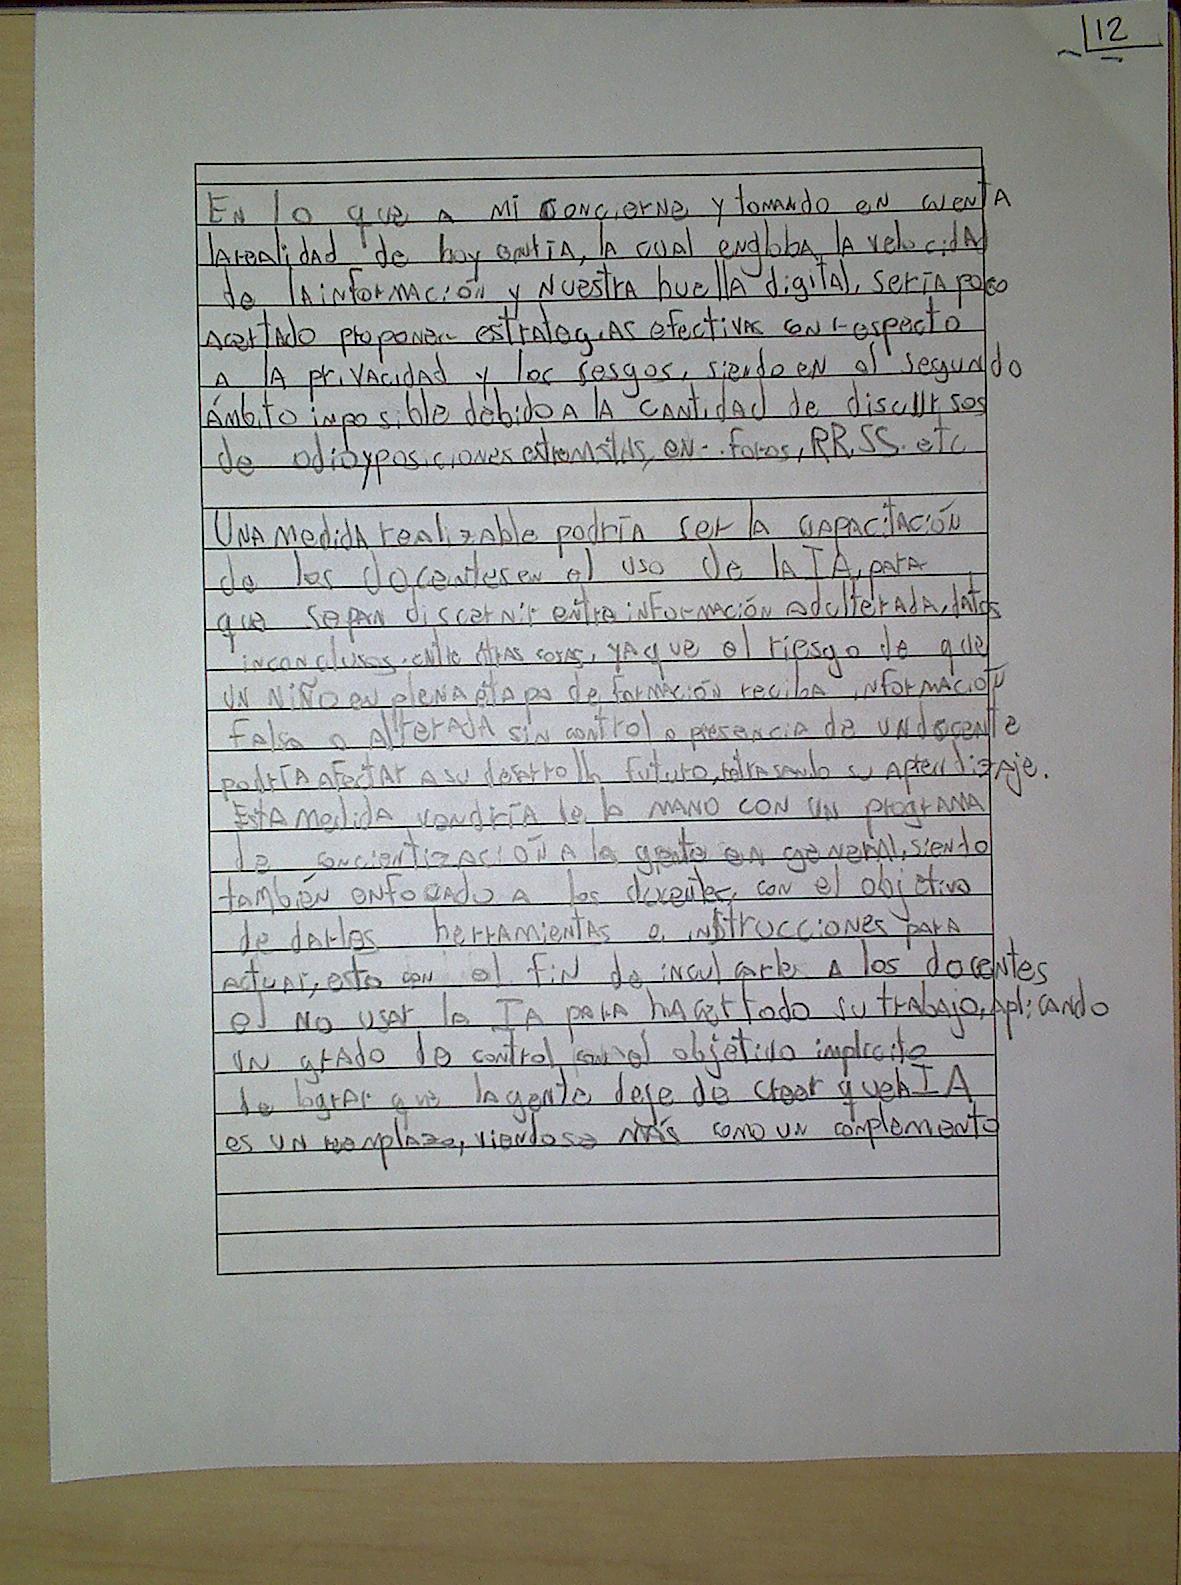 12
En lo que a mi concierne y tomando en cuenta
la realidad de hoy en día, la cual engloba la velocidad
de la información y nuestra huella digital, sería poco
acertado proponer estrategias efectivas con respecto
a la privacidad y los sesgos, siendo en el segundo
ámbito imposible debido a la cantidad de discursos
de odio y posiciones extremistas, en foros, RR.SS. etc
Una medida realizable podría ser la capacitación
de los docentes en el uso de la IA, para
que sepan discernir entre información adulterada, datos
inconclusos, entre otras cosas, ya que el riesgo de que
un niño en plena etapa de formación reciba información
falsa o alterada sin control o presencia de un docente
podría afectar a su desarrollo futuro, retrasando su aprendizaje.
Esta medida vendría de la mano con un programa
de concientización a la gente en general, siendo
también enfocado a los docentes, con el objetivo
de darles herramientas e instrucciones para
actuar, esto con el fin de inculcarles a los docentes
el no usar la IA para hacer todo su trabajo, aplicando
un grado de control con el objetivo implícito
de lograr que la gente deje de creer que la IA
es un remplazo, viendose más como un complemento